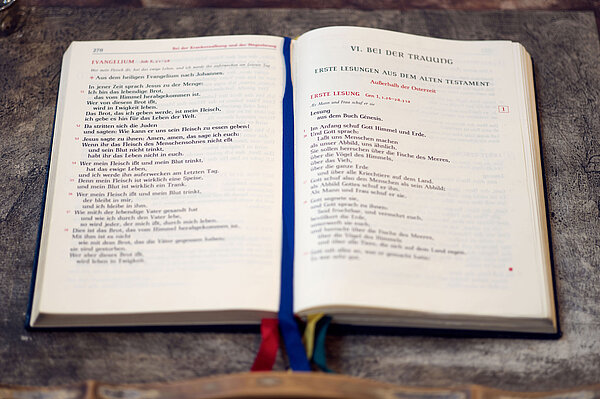 270
Bei der Krankensalbung und der Wegzehrung
EVANGELIUM Joh 6, 51–58
Wer mein Fleisch ißt und mein Blut trinkt, hat das ewige Leben, und ich werde ihn auferwecken am Letzten Tag
+ Aus dem heiligen Evangelium nach Johannes.
In jener Zeit sprach Jesus zu der Menge:
51 Ich bin das lebendige Brot,
das vom Himmel herabgekommen ist.
Wer von diesem Brot ißt,
wird in Ewigkeit leben.
Das Brot, das ich geben werde, ist mein Fleisch,
ich gebe es hin für das Leben der Welt.
52 Da stritten sich die Juden
und sagten: Wie kann er uns sein Fleisch zu essen geben?
53 Jesus sagte zu ihnen: Amen, amen, das sage ich euch:
Wenn ihr das Fleisch des Menschensohnes nicht eßt
und sein Blut nicht trinkt,
habt ihr das Leben nicht in euch.
54 Wer mein Fleisch ißt und mein Blut trinkt,
hat das ewige Leben,
und ich werde ihn auferwecken am Letzten Tag.
55 Denn mein Fleisch ist wirklich eine Speise,
und mein Blut ist wirklich ein Trank.
56 Wer mein Fleisch ißt und mein Blut trinkt,
der bleibt in mir,
und ich bleibe in ihm.
57 Wie mich der lebendige Vater gesandt hat
und wie ich durch den Vater lebe,
so wird jeder, der mich ißt, durch mich leben.
58 Dies ist das Brot, das vom Himmel herabgekommen ist.
Mit ihm ist es nicht
wie mit dem Brot, das die Väter gegessen haben;
sie sind gestorben.
Wer aber dieses Brot ißt,
wird leben in Ewigkeit.
VI. BEI DER TRAUUNG
ERSTE LESUNGEN AUS DEM ALTEN TESTAMENT
Außerhalb der Osterzeit
ERSTE LESUNG Gen 1, 1.26–28.31a
1
Als Mann und Frau schuf er sie
Lesung
aus dem Buch Génesis.
Im Anfang schuf Gott Himmel und Erde.
Und Gott sprach:
Laßt uns Menschen machen
als unser Abbild, uns ähnlich.
Sie sollen herrschen über die Fische des Meeres,
über die Vögel des Himmels,
über das Vieh,
über die ganze Erde
und über alle Kriechtiere auf dem Land.
Gott schuf also den Menschen als sein Abbild;
als Abbild Gottes schuf er ihn.
Als Mann und Frau schuf er sie.
Gott segnete sie,
und Gott sprach zu ihnen:
Seid fruchtbar, und vermehrt euch,
bevölkert die Erde,
unterwerft sie euch,
und herrscht über die Fische des Meeres,
über die Vögel des Himmels
und über alle Tiere, die sich auf dem Land regen.
Gott sah alles an, was er gemacht hatte:
Es war sehr gut.